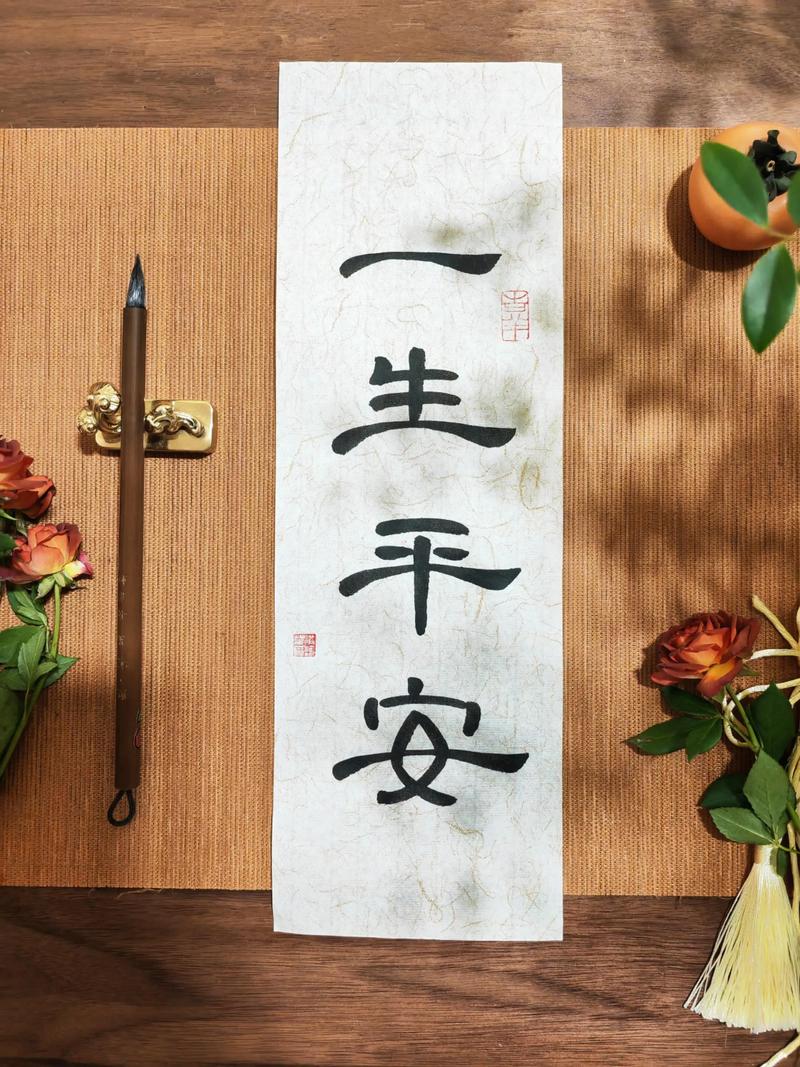 一生平安